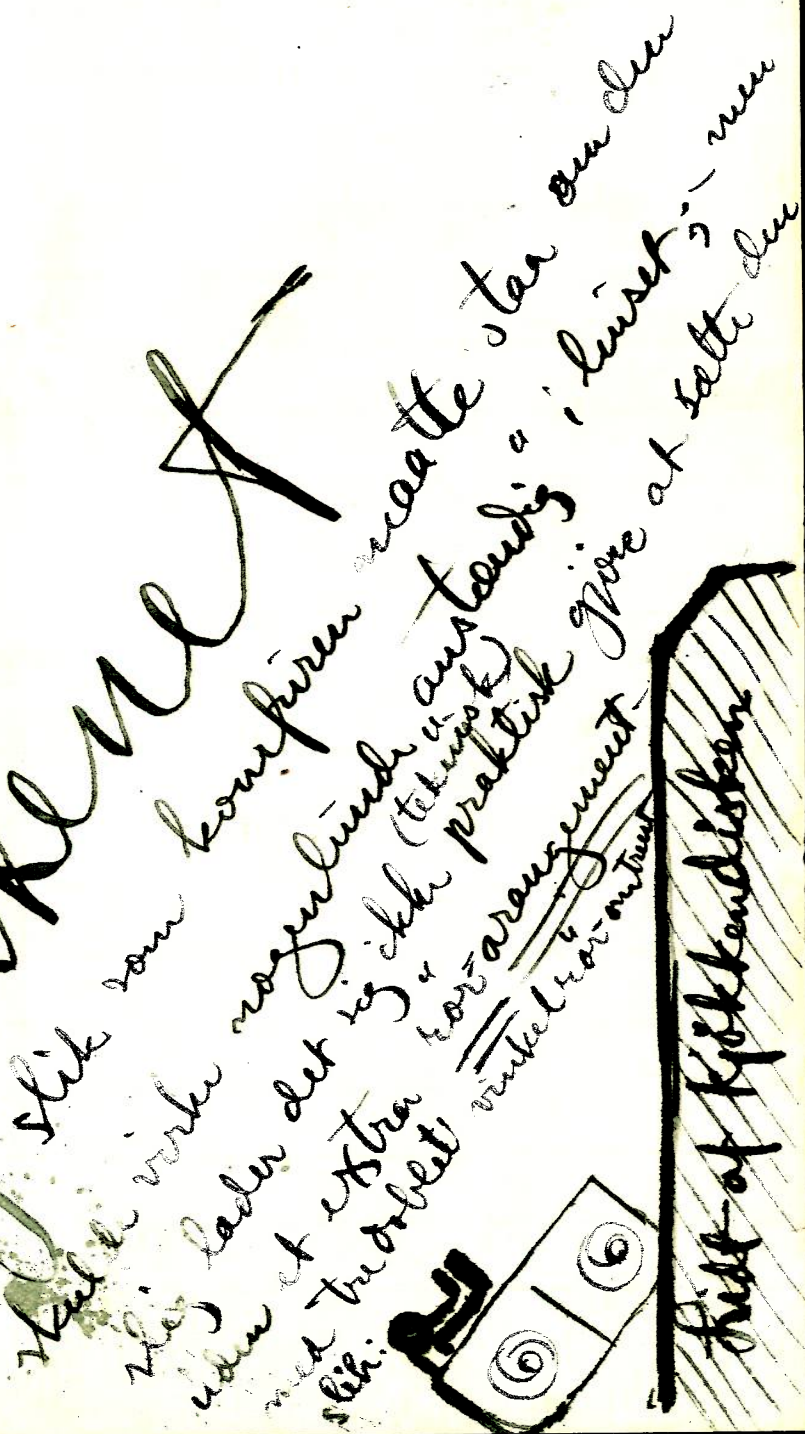 slik som komfüren maatte staa om den
skulde virke nogenlunde "anstændig" i huset; – men
slig lader det sig ikke (teknisk) praktisk gjöre at sætte den
uden et extra "rör-arangement –
med tredoblet vinkelrör
slik:
Lidt af Kjökkendisken